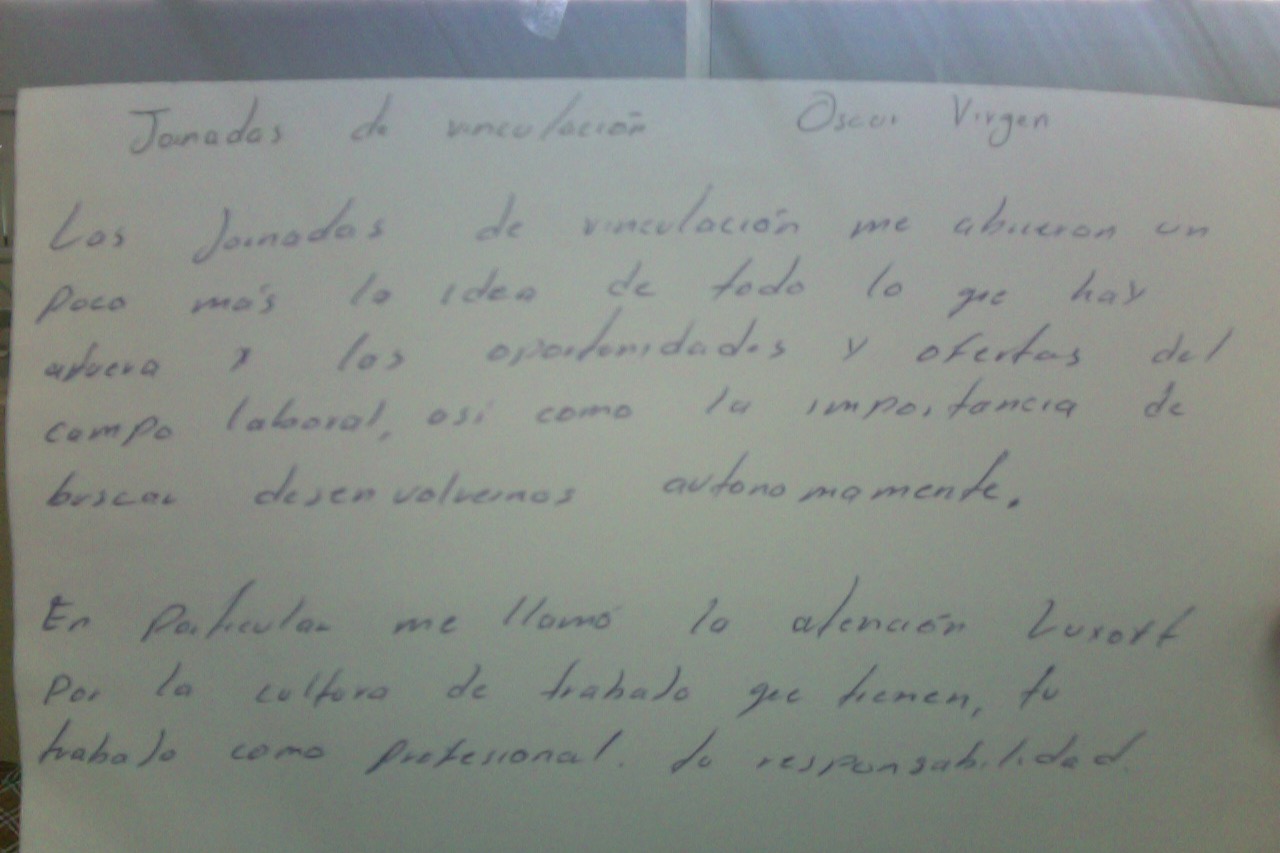 Jornadas de vinculación Oscar Virgen
Las Jornadas de vinculación me abrieron un
poco más la idea de todo lo que hay
afuera y las oportunidades y ofertas del
campo laboral, asi como la importancia de
buscar desenvolvernos autonomamente.
En particular me llamó la atención
por la cultura de trabajo que tienen, tu
trabajo como profesional. tu responsabilidad.